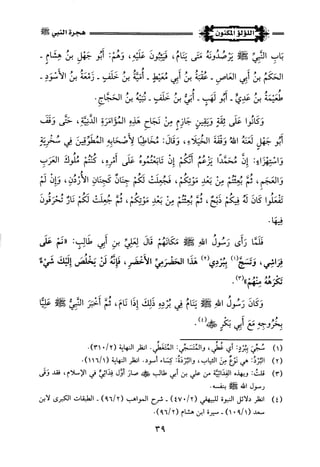 هجرة النبي ﷺ
اللؤلؤ المكنون
بَابِ النَّبِيِّ ﷺ يَرْصُدُونَهُ مَتَى يَنَامُ، فَيَثِبُونَ عَلَيْهِ، وَهُمْ: أَبُو جَهْلِ بنُ هِشَامٍ -
الحَكَمُ بنُ أَبِي العَاصِ - عُقْبَةُ بنُ أَبِي مُعَيْطٍ - أُمَيَّةُ بنُ خَلَفٍ - زَمْعَةُ بنُ الأَسْوَدِ -
طُعَيْمَةُ بنُ عَدِيٍّ - أَبُو لَهَبٍ - أُبَيُّ بنُ خَلَفٍ - نُبَيْهُ بنُ الحَجَّاجِ.
وَكَانُوا عَلَى ثِقَةٍ وَيَقِينٍ جَازِمٍ مِنْ نَجَاحِ هَذِهِ المُؤَامَرَةِ الدَّنِيَّةِ، حَتَّى وَقَفَ
أَبُو جَهْلٍ لَعَنَهُ اللهُ وَقْفَةَ الخُيَلَاءِ، وَقَالَ: مُخَاطِبًا لِأَصْحَابِهِ المُطَوِّقِينَ فِي سُخْرِيَةٍ
وَاسْتِهْزَاءٍ: إِنَّ مُحَمَّدًا يَزْعُمُ أَنَّكُمْ إِنْ تَابَعْتُمُوهُ عَلَى أَمْرِهِ، كُنْتُمْ مُلُوكَ العَرَبِ
وَالعَجَمِ، ثُمَّ بُعِثْتُمْ مِنْ بَعْدِ مَوْتِكُمْ، فَجُعِلَتْ لَكُمْ جِنَانٌ كَجِنَانِ الأُرْدُنِ، وَإِنْ لَمْ
تَفْعَلُوا كَانَ لَهُ فِيكُمْ ذَبْحٌ، ثُمَّ بُعِثْتُمْ مِنْ بَعْدِ مَوْتِكُمْ، ثُمَّ جُعِلَتْ لَكُمْ نَارٌ تُحْرَقُونَ
فِيهَا.
فَلَمَّا رَأَى رَسُولُ اللهِ ﷺ مَكَانَهُمْ قَالَ لِعَلِيِّ بنِ أَبِي طَالِبٍ: «نَمْ عَلَى
فِرَاشِي، وَتَسَجَّ(١) بِبُرْدِي(٢) هَذَا الحَضْرَمِيِّ الأَخْضَرِ، فَإِنَّهُ لَنْ يَخْلُصَ إِلَيْكَ شَيْءٌ
تَكْرَهُهُ مِنْهُمْ»(٣).
وَكَانَ رَسُولُ اللهِ ﷺ يَنَامُ فِي بُرْدِهِ ذَلِكَ إِذَا نَامَ، ثُمَّ أَخْبَرَ النَّبِيُّ ﷺ عَلِيًّا
بِخُرُوجِهِ مَعَ أَبِي بَكْرٍ(٤).
(١) سُجِّيَ بِبُرْدٍ: أي غُطِّي، والمُتَسَجِّي: المُتَغَطِّي. انظر النهاية (٣١٠/٢).
(٢) البُرْدُ: هي نَوْعٌ مِنَ الثياب، والبُرْدَةُ: كِسَاء أسود. انظر النهاية (١١٦/١).
(٣) قلتُ: وبهذه الفِدَائِيَّة من علي بن أبي طالب صارَ أوَّل فِدَائِيٍّ في الإسلام، فقد وَقَى
رسول الله ﷺ بنفسه.
(٤) انظر دلائل النبوة للبيهقي (٤٧٠/٢) - شرح المواهب (٩٦/٢) - الطبقات الكبرى لابن
سعد (١٠٩/١) - سيرة ابن هشام (٩٦/٢).
٣٩